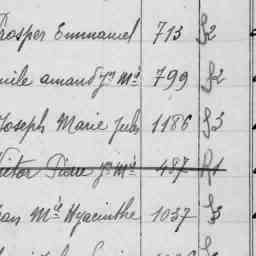 Prosper Emmanuel 713 S2
Emile amand Jh Mie 799 S2
Joseph Marie Jules 1186 S3
Victor Pierre Jh Mie 487 S1
Jean Mie Hyacinthe 1037 S3